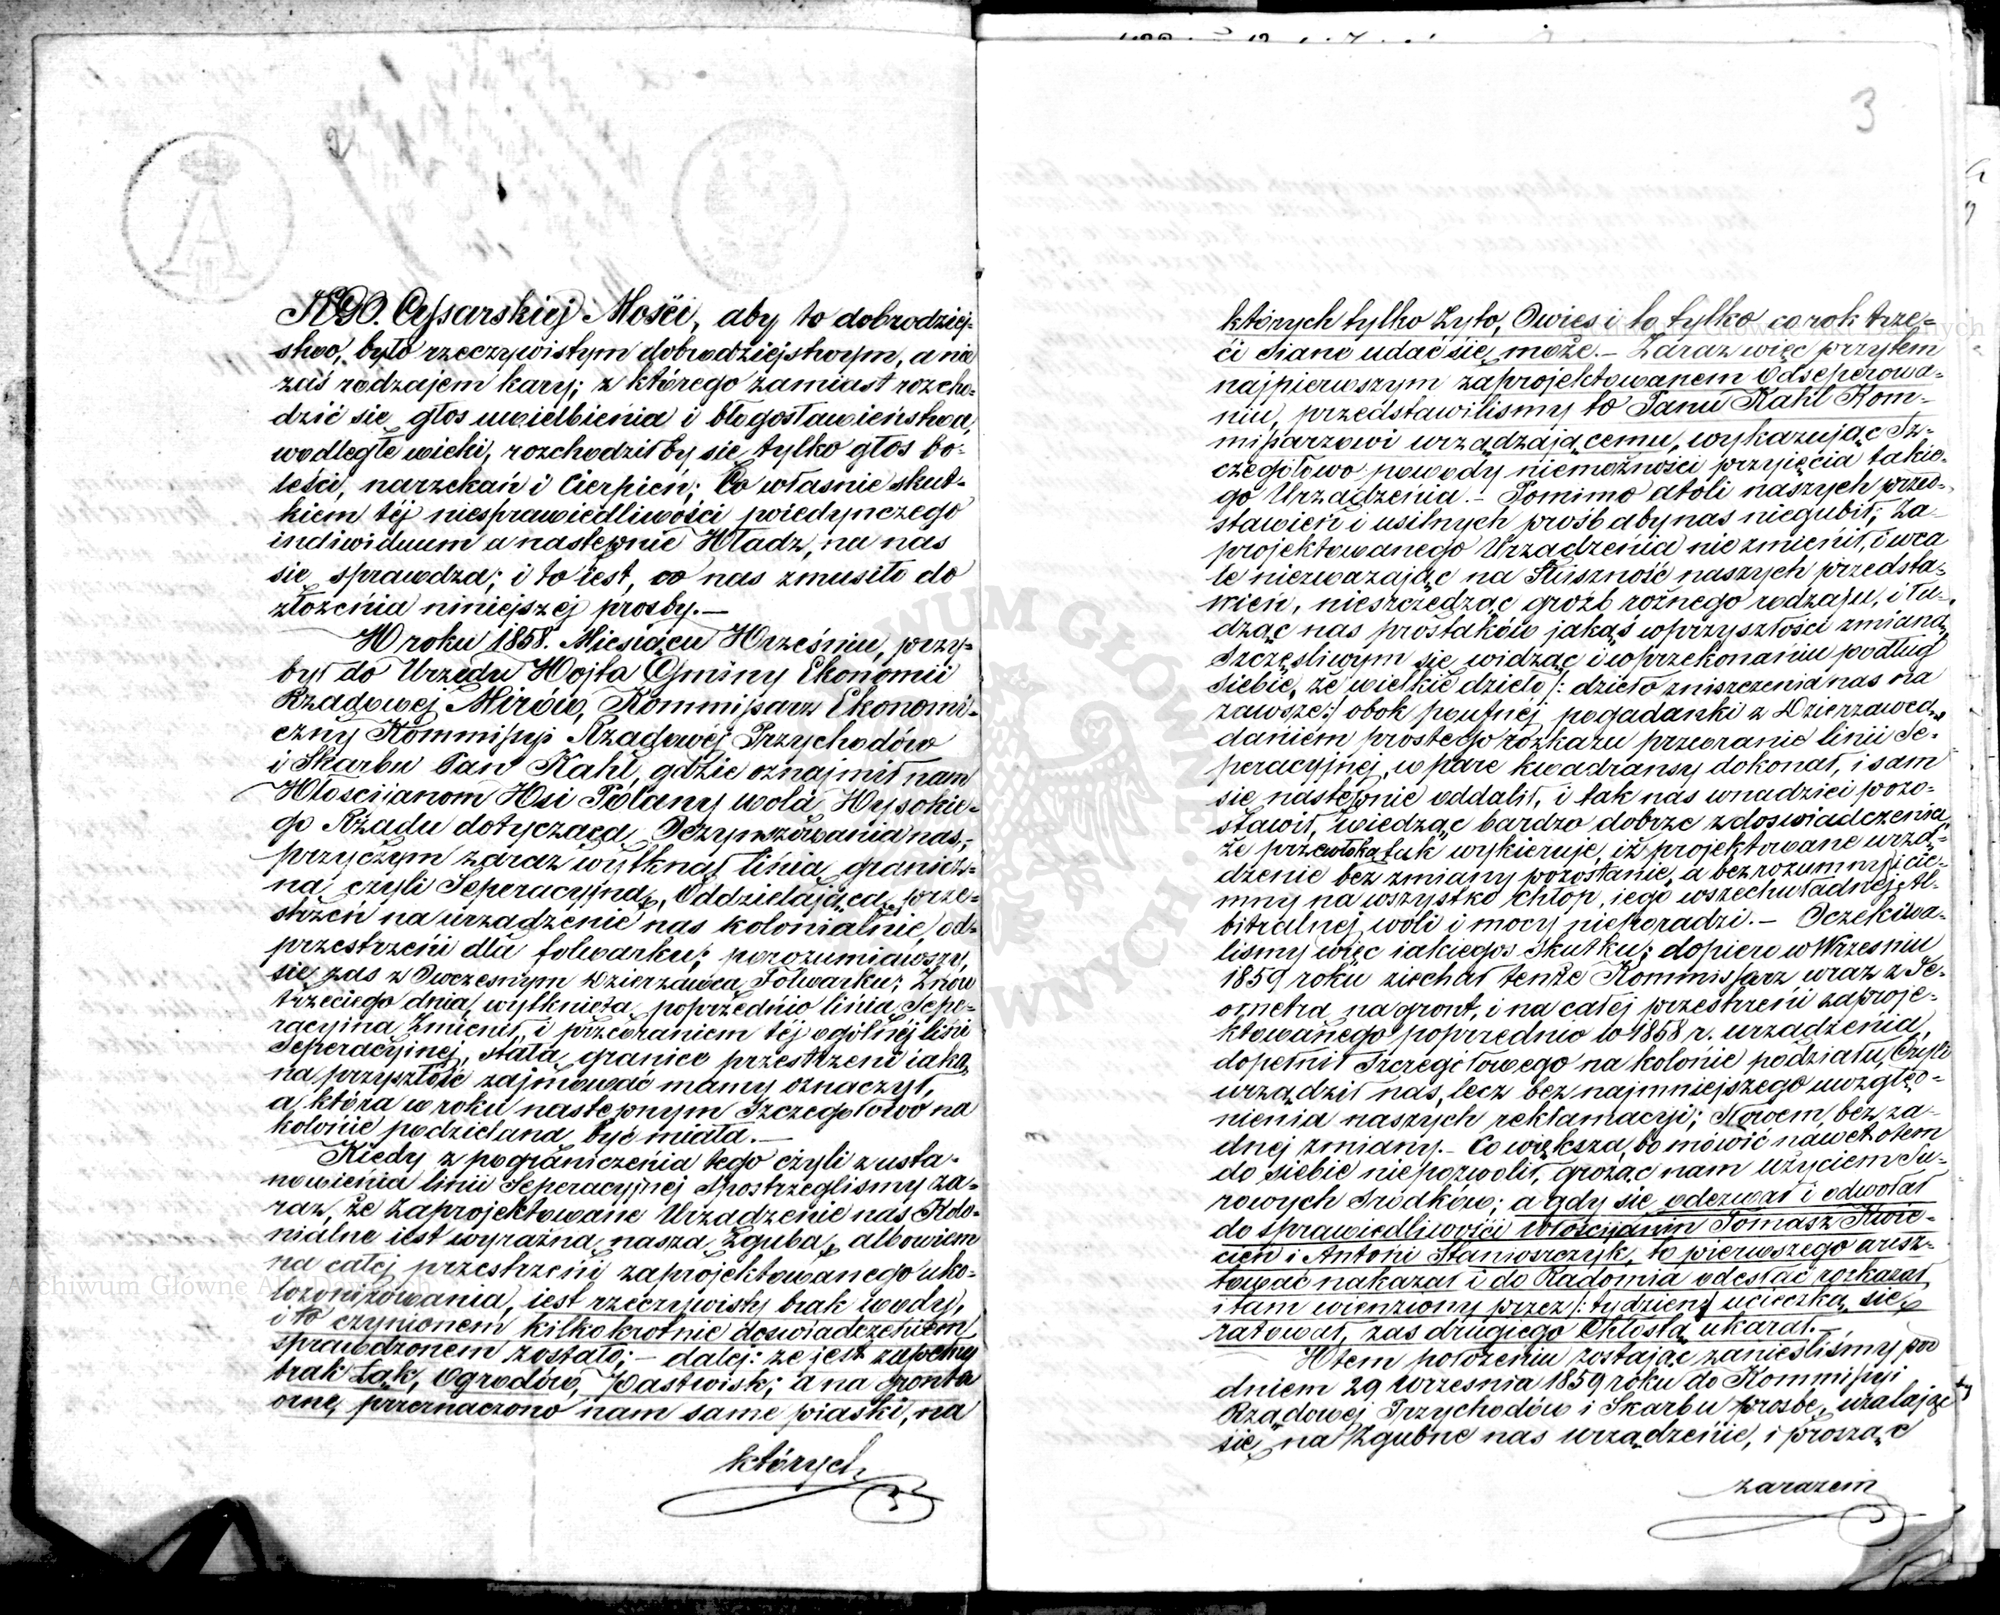 JEGO. Cessarskiej Mości, aby to dobrodziej-
stwo, było rzeczywistym dobrodziejstwem, a nie
zaś rodzajem kary; z którego zamiast rozcho-
dzić się głos uwielbienia i błogosławieństwa,
w odległe wieki, rozchodziłby się tylko głos bo-
leści, narzekań i Cierpień; Co własnie skut-
kiem téj niesprawiedliwości poiedynczego
indiwiduum a następnie Władz, na nas
się sprawdza; i to iest, co nas zmusiło do
złożenia niniejszej prosby.—
W roku 1858. Miesiącu Wrześniu, przy-
był do Urzędu Wojta Gminy Ekonomii
Rządowéj Mirów, Kommissarz Ekonomi-
czny Kommissyi Rządowéj Przychodów
i Skarbu Pan Kahl, gdzie oznajmił nam
Włoscijanom Wsi Polany wolą Wysokie-
go Rządu dotyczącą Oczynszówania nas,-
przyczym zaraz wytknął linią granicz-
ną czyli Seperacyjną, Oddzielającą prze-
strzeń na urządzenie nas kolonialnie, od-
przestrzeni dla folwarku; porozumiawszy
się zas z Owczesnym Dzierzawcą Folwarku; Znów
trzeciego dnia, wytkniętą poprzednio linią Sepe-
racyjną Zmienił, i przeoraniem téj ogólnéj linii
Seperacyjnej, stałą granicę przestrzeni iaką
na przyszłość zajmować mamy oznaczył,
a, która w roku następnym Szczegołowo na
kolonie podzieloną być miała.—
Kiedy z pograniczenia tego czyli z usta-
nowienia linii Seperacyjnej Spostrzeglismy za-
raz, że Zaprojektowane Urządzenie nas, Kolo-
nialne iest wyraźną naszą Zgubą, albowiem
na całej przestrzeni zaprojektowanego uko-
lozonizowania, iest rzeczywisty brak wody,
i to czynionem kilkokrotnie doswiadczeniem
sprawdzonem zostało;— dalej: że jest zupełny
brak Łąk, Ogrodów, Pastwisk; a na gronta
orne, przeznaczono nam same piaski, na
których
3
których tylko Żyto, Owies i to tylko co rok trze-
ci Siane udać się może.— Zaraz więc przytem
najpierwszym zaprojektowanem Odseperowa-
niu, przedstawilismy to Panu Kahl Kom-
missarzowi urządzającemu, wykazując Sz-
czegółowo powody niemożności przyjęcia takie-
go Urządzenia.— Pomimo atoli naszych przed-
stawień i usilnych prośb aby nas niegubił; Za-
projektowanego Urządzenia nie zmienił, i wca-
le niezważając na Słuszność naszych przedsta-
wień, nieszczędząc groźb rożnego rodzaju, i łu-
dząc nas prostaków jakąś w przyszłości zmianą,
Szczęśliwym się widząc i w przekonaniu podług
siebie, że wielkie dzieło /: dzieło zniszczenia nas na
zawsze:/ obok poufnéj pogadanki z Dzierzawcą,
daniem prostego rozkazu przeoranie linii Se-
peracyjnej, w parę kwadransy dokonał, i sam
się następnie oddalił, i tak nas w nadziei pozo-
stawił, wiedząc bardzo dobrze z doswiadczenia,
że przewłoką tak wykieruje, iż projektowane urzą-
dzenie bez zmiany pozostanie, a bezrozumny i cie-
mny na wszystko chłop, iego wszechwładnej Al-
bitralnej woli i mocy nieporadzi.— Oczekiwa-
lismy więc iakiegos Skutku; dopiero w Wrzesniu
1859 roku ziechał tenże Kommissarz wraz z Je-
ometrą na gront, i na całéj przestrzeni zaproje-
ktowanego poprzednio to 1858 r. urządzenia,
dopełnił Szczegółowego na kolonie podziału, Czyli
urządził nas, lecz bez najmniejszego uwzglę-
nienia naszych reklamacyi; Słowem, bez ża-
dnej zmiany.— Co większa, bo mówić nawet o tem
do siebie niepozwolił, grożąc nam użyciem Su-
rowych Srodków; a gdy się odezwał i odwołał
do sprawiedliwości włościjanin Tomasz Kwie-
cień i Antoni Stanioszczyk, to pierwszego aresz-
tować nakazał i do Radomia odesłać rozkazał
i tam więziony przez /: tydzień:/ ucieczką się
ratował, zas drugiego Chłostą ukarał.—
W tem położeniu zostając zaniesliśmy pod
dniem 29 Wrzesnia 1859 roku do Kommissyi
Rządowej Przychodów i Skarbu prosbę, użalając
się na Zgubne nas urządzenie, i prosząc
zarazem
Archiwum Główne Akt Dawnych